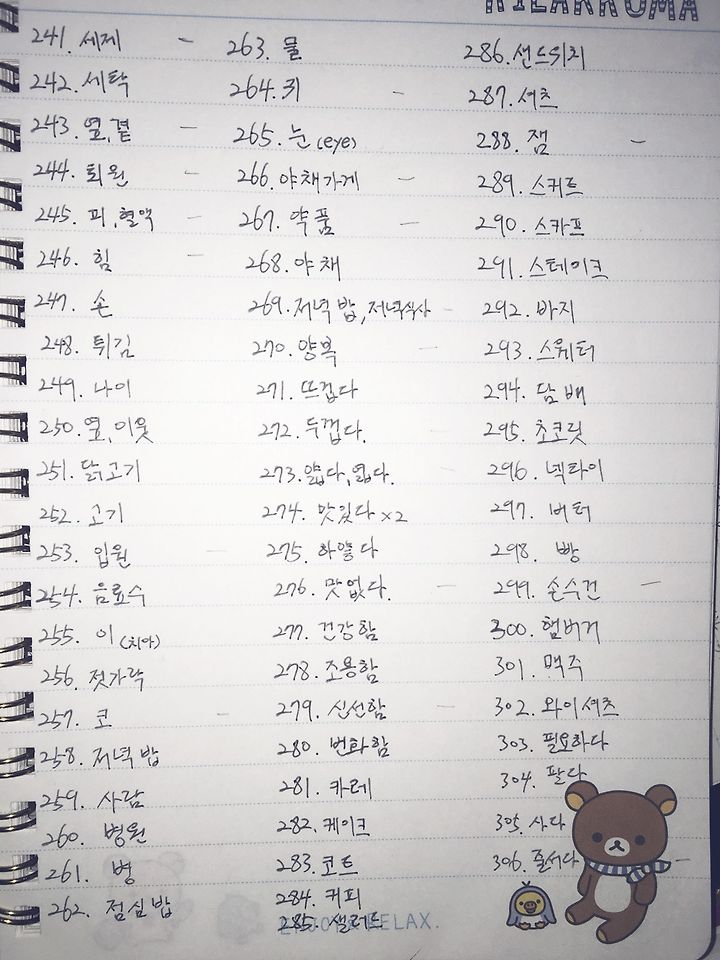 RILAKKUMA
241. 세제 -
242. 세탁
243. 옆, 곁 -
244. 퇴원 -
245. 피, 혈액 -
246. 힘 -
247. 손
248. 튀김
249. 나이
250. 옆, 이웃
251. 닭고기
252. 고기
253. 입원 -
254. 음료수
255. 이 (치아)
256. 젓가락
257. 코 -
258. 저녁 밥
259. 사람
260. 병원
261. 병
262. 점심 밥
263. 물
264. 귀 -
265. 눈 (eye)
266. 야채가게 -
267. 약품 -
268. 야채
269. 저녁 밥, 저녁식사 -
270. 양복 -
271. 뜨겁다
272. 두껍다. -
273. 얇다, 엷다.
274. 맛있다 x2
275. 하얗다
276. 맛없다. -
277. 건강함
278. 조용함
279. 신선함 -
280. 번화함
281. 카레
282. 케이크
283. 코트
284. 커피
285. 샐러드
286. 샌드위치
287. 셔츠
288. 잼 -
289. 스커트
290. 스카프
291. 스테이크
292. 바지
293. 스웨터
294. 담배
295. 초코릿
296. 넥타이
297. 버터
298. 빵
299. 손수건 -
300. 햄버거
301. 맥주
302. 와이셔츠
303. 필요하다
304. 팔다
305. 사다
306. 줄서다 -
ENJOY RELAX.